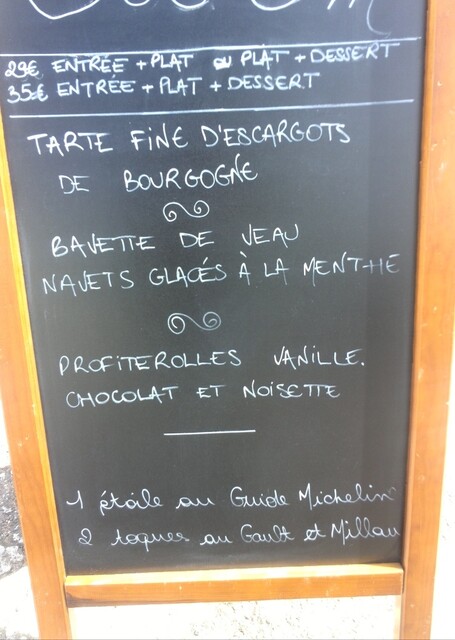 29€ ENTRÉE + PLAT ou PLAT + DESSERT
35€ ENTRÉE + PLAT + DESSERT
TARTE FINE D'ESCARGOTS
DE BOURGOGNE
BAVETTE DE VEAU
NAVETS GLACÉS À LA MENTHE
PROFITEROLLES VANILLE.
CHOCOLAT ET NOISETTE
1 étoile au Guide Michelin
2 toques au Gault et Millau